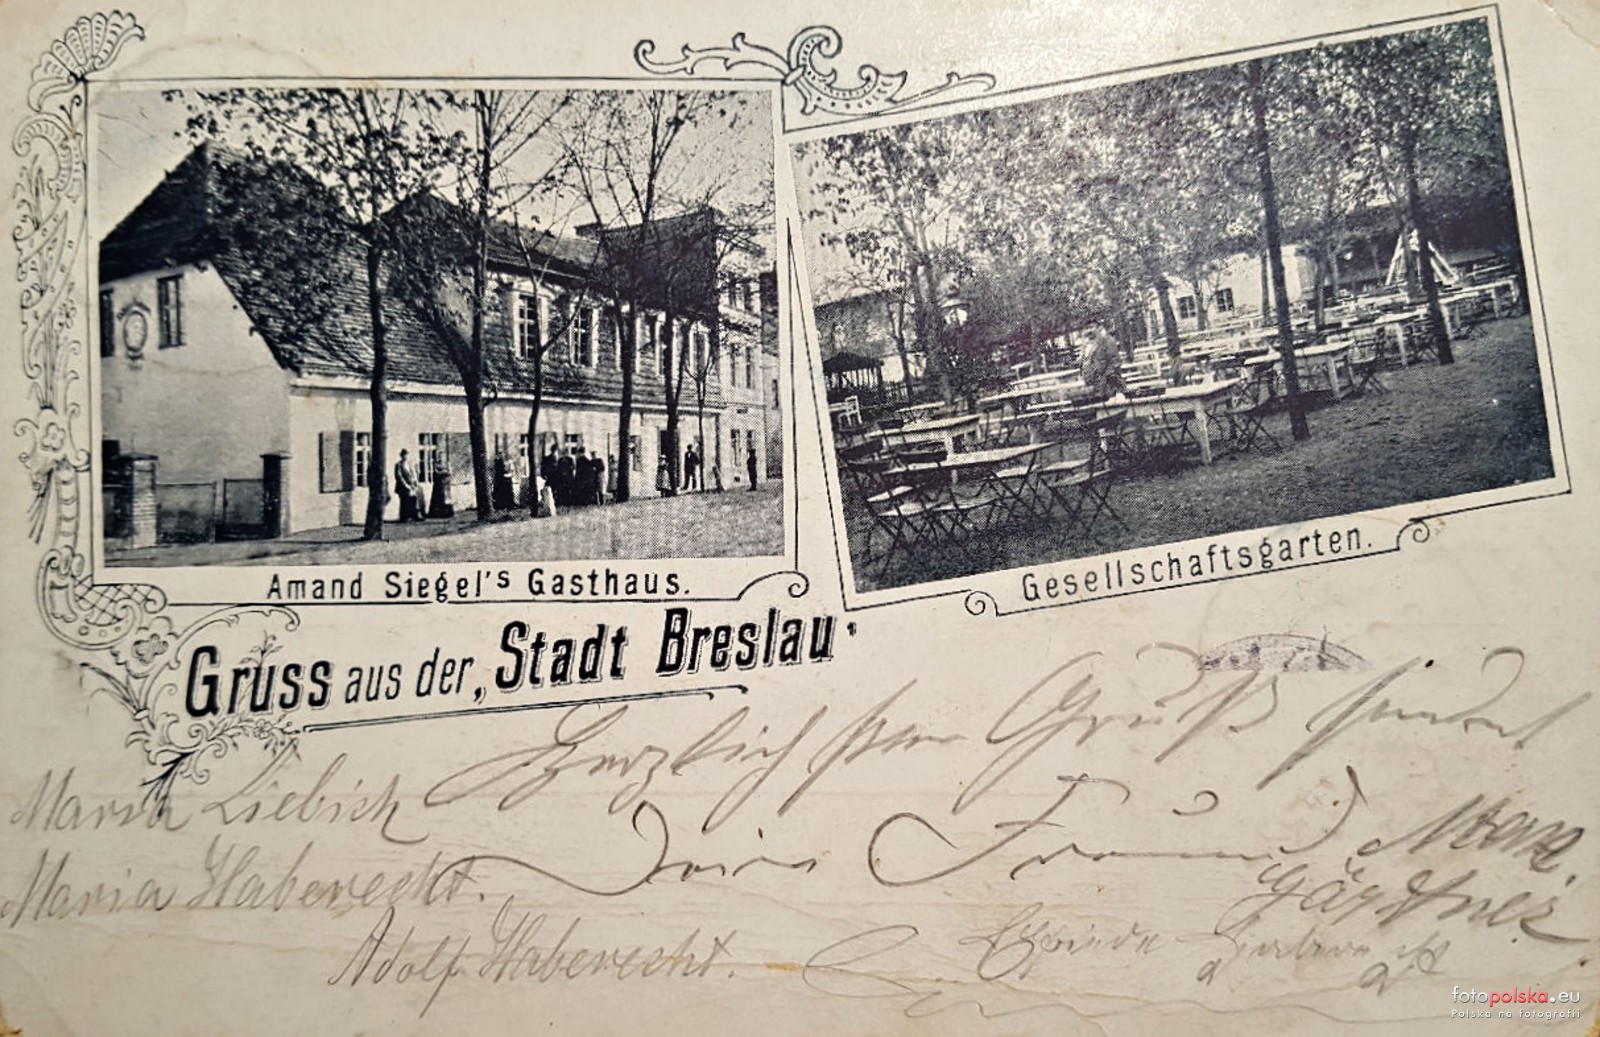 Amand Siegel's Gasthaus.
Gesellschaftsgarten.
Gruss aus der „Stadt Breslau"
Herzlichsten Gruß sendet
Maria Liebich
Dein Freund Max
Gärtner
Maria Haberecht.
Adolf Haberecht.
Haberecht
fotopolska.eu
Polska na fotografii